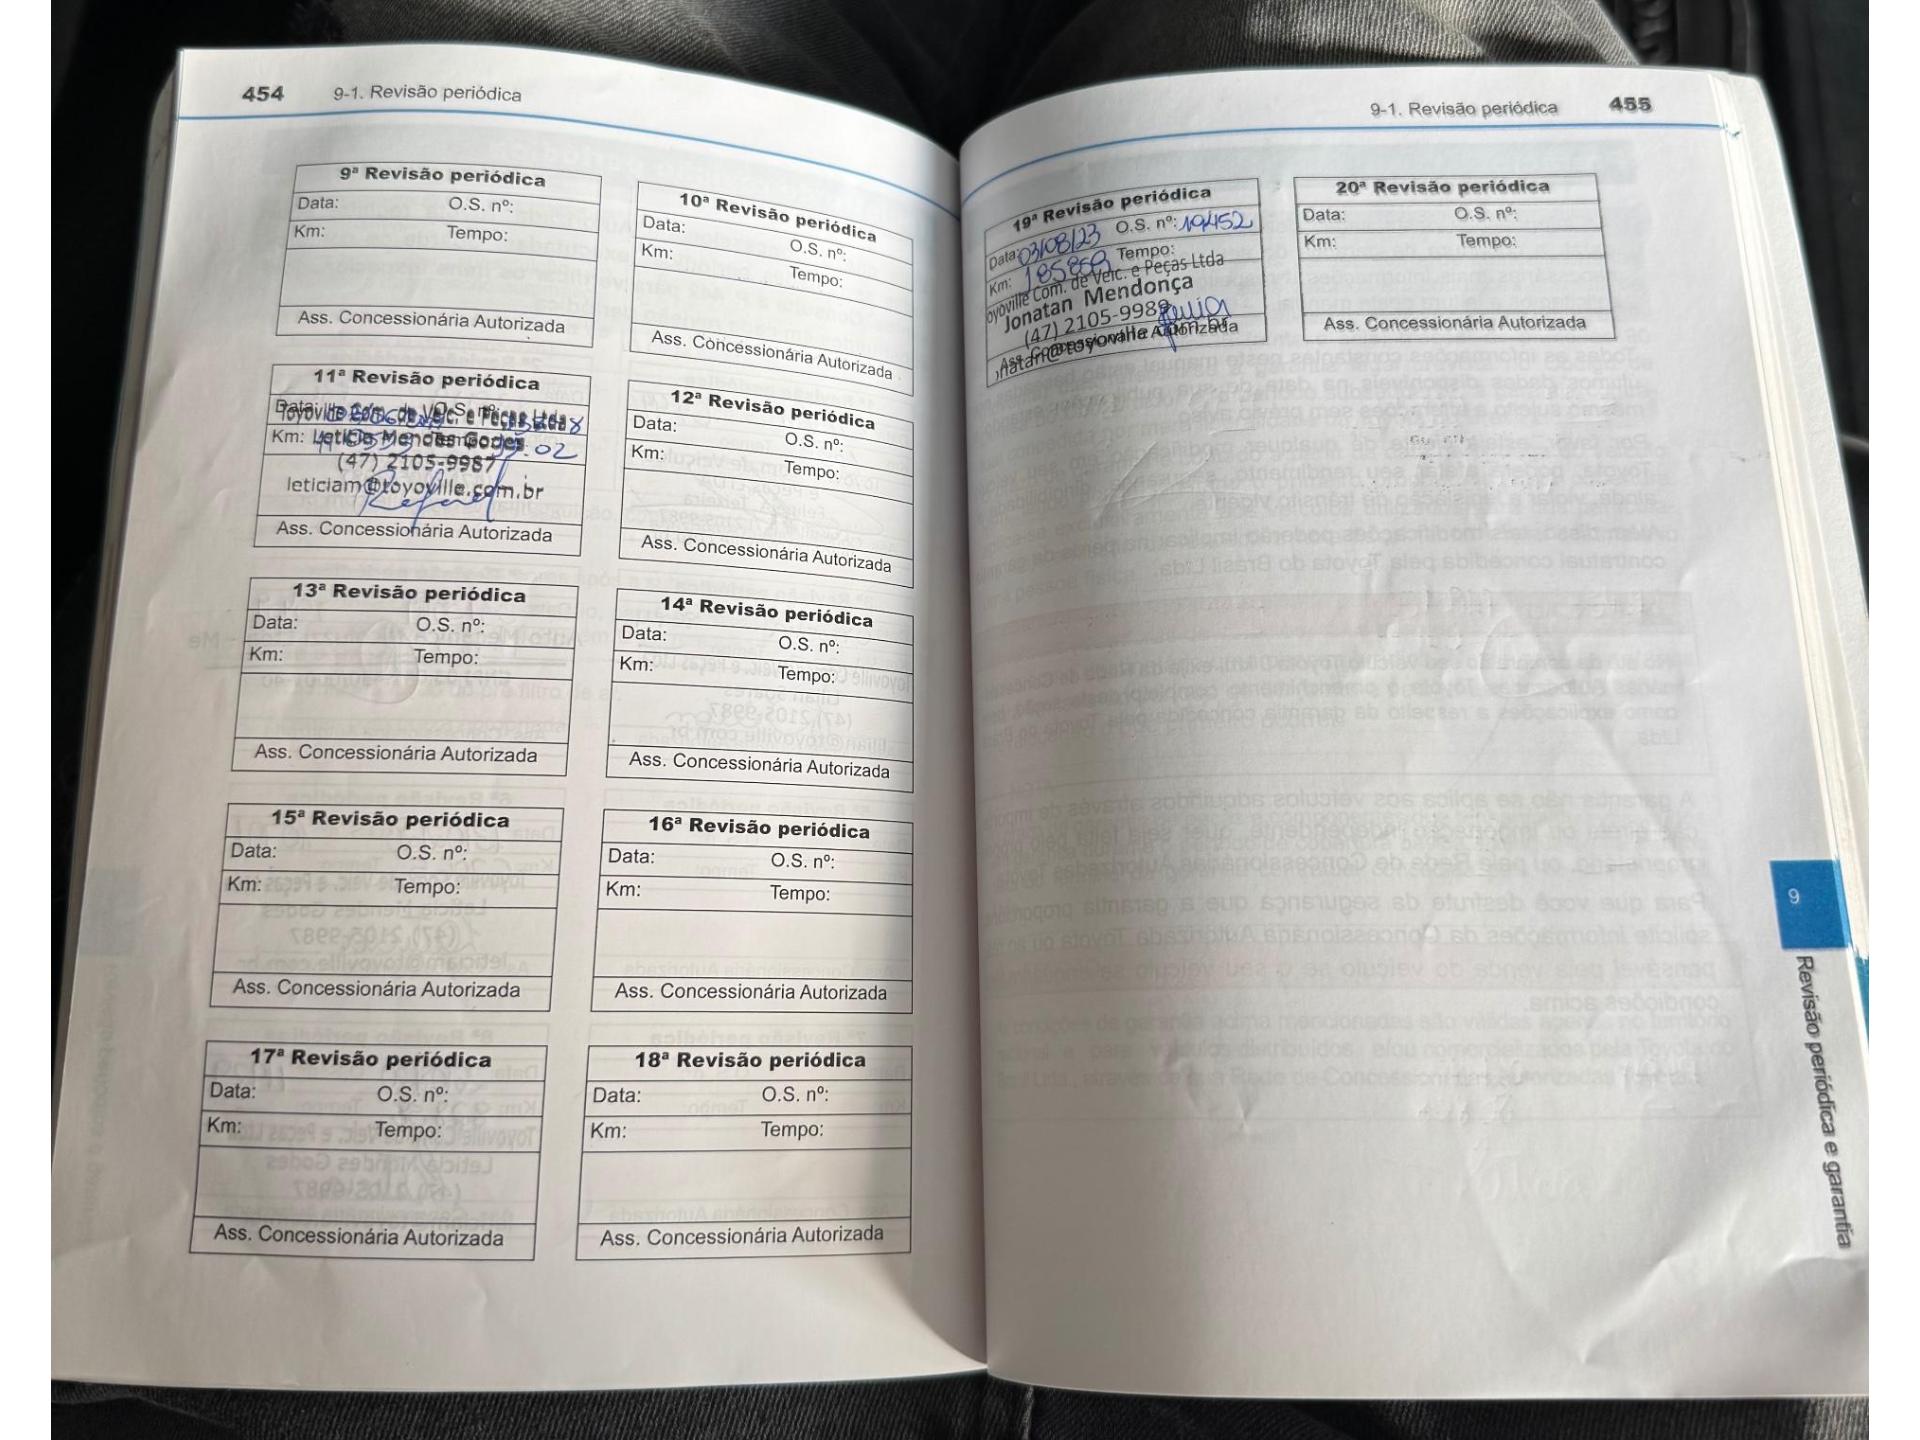 454 9-1. Revisão periódica
9ª Revisão periódica
Data: O.S. nº:
Km: Tempo:
Ass. Concessionária Autorizada
10ª Revisão periódica
Data: O.S. nº:
Km: Tempo:
Ass. Concessionária Autorizada
11ª Revisão periódica
Data: O.S. nº:
Toyoville Com. de Veic. e Peças Ltda
Km: Tempo: 02
Leticia Mendes Godes
(47) 2105-9987
leticiam@toyoville.com.br
Rafael
Ass. Concessionária Autorizada
12ª Revisão periódica
Data: O.S. nº:
Km: Tempo:
Ass. Concessionária Autorizada
13ª Revisão periódica
Data: O.S. nº:
Km: Tempo:
Ass. Concessionária Autorizada
14ª Revisão periódica
Data: O.S. nº:
Km: Tempo:
Ass. Concessionária Autorizada
15ª Revisão periódica
Data: O.S. nº:
Km: Tempo:
Ass. Concessionária Autorizada
16ª Revisão periódica
Data: O.S. nº:
Km: Tempo:
Ass. Concessionária Autorizada
17ª Revisão periódica
Data: O.S. nº:
Km: Tempo:
Ass. Concessionária Autorizada
18ª Revisão periódica
Data: O.S. nº:
Km: Tempo:
Ass. Concessionária Autorizada
9-1. Revisão periódica 455
19ª Revisão periódica
Data: 03/08/23 O.S. nº: 19452
Km: Tempo:
oyoville Com. de Veic. e Peças Ltda
Jonatan Mendonça
(47) 2105-9989
Ass. Concessionária Autorizada
natan@toyoville.com.br
20ª Revisão periódica
Data: O.S. nº:
Km: Tempo:
Ass. Concessionária Autorizada
9
Revisão periódica e garantia